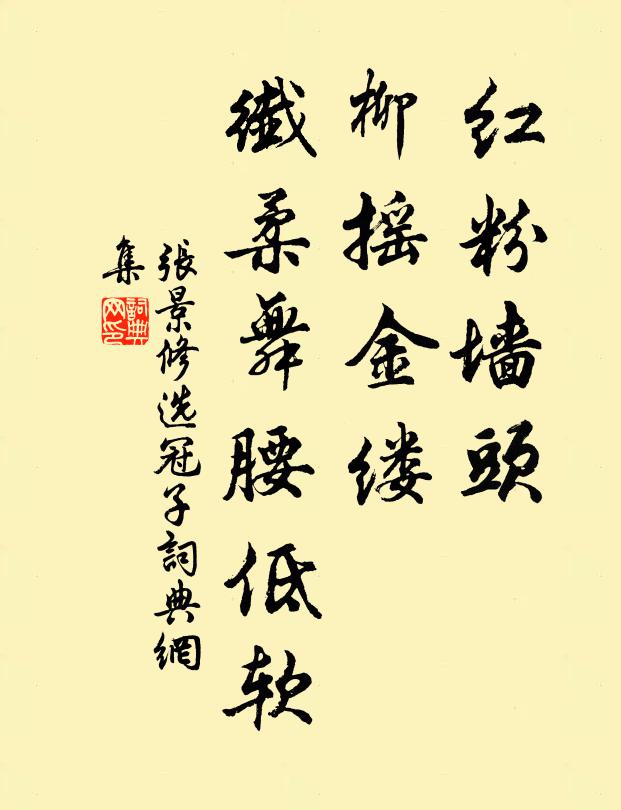 红粉墙头
柳摇金缕
纖柔舞腰低软
張景修选冠子詞典網
集
詞典网印